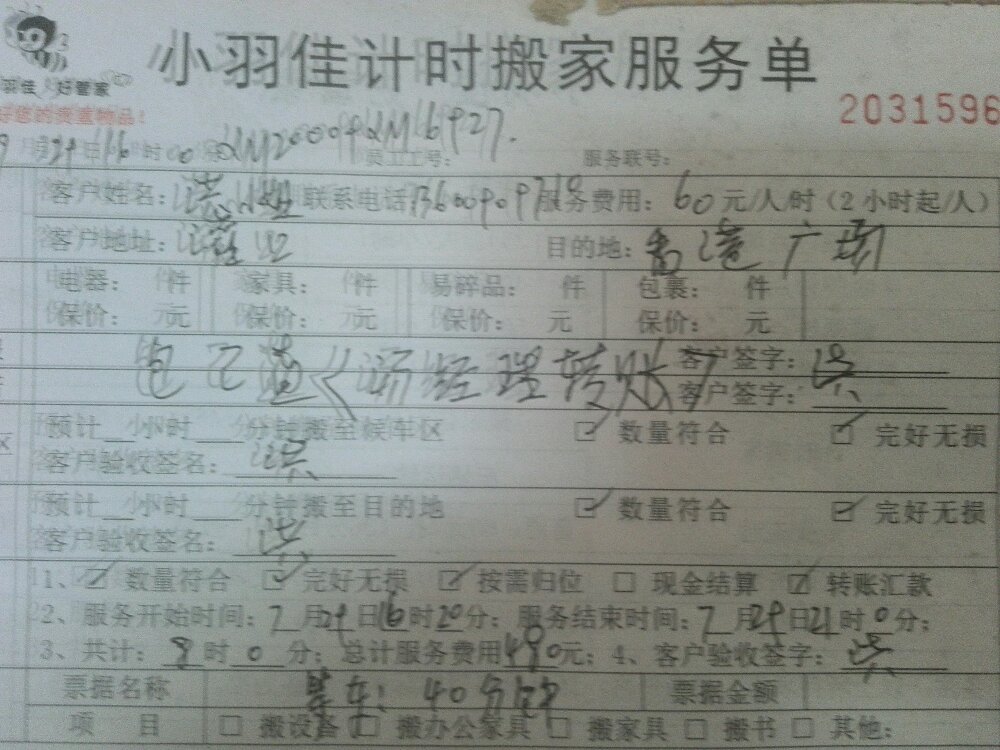 小羽佳计时搬家服务单
羽佳 好管家
好您的贵重物品！
2031596
月29日16时00分 员工工号： 服务联号：
客户姓名：洪小姐 联系电话： 服务费用：60元/人/时（2小时起/人）
客户地址： 目的地：香港广场
电器： 件 家具： 件 易碎品： 件 包裹： 件
保价： 元 保价： 元 保价： 元 保价： 元
客户签字：洪
经理转账
客户签字：洪
预计__小时___分钟搬至候车区 ☑数量符合 ☑完好无损
客户验收签名：洪
预计__小时___分钟搬至目的地 ☑数量符合 ☑完好无损
客户验收签名：洪
1、☑数量符合 ☑完好无损 ☑按需归位 □现金结算 ☑转账汇款
2、服务开始时间：7月29日16时20分；服务结束时间：7月29日21时0分；
3、共计：8时0分；总计服务费用490元；4、客户验收签字：洪
票据名称 等车：40分钟 票据金额
项 目 □搬设备 □搬办公家具 □搬家具 □搬书 □其他：